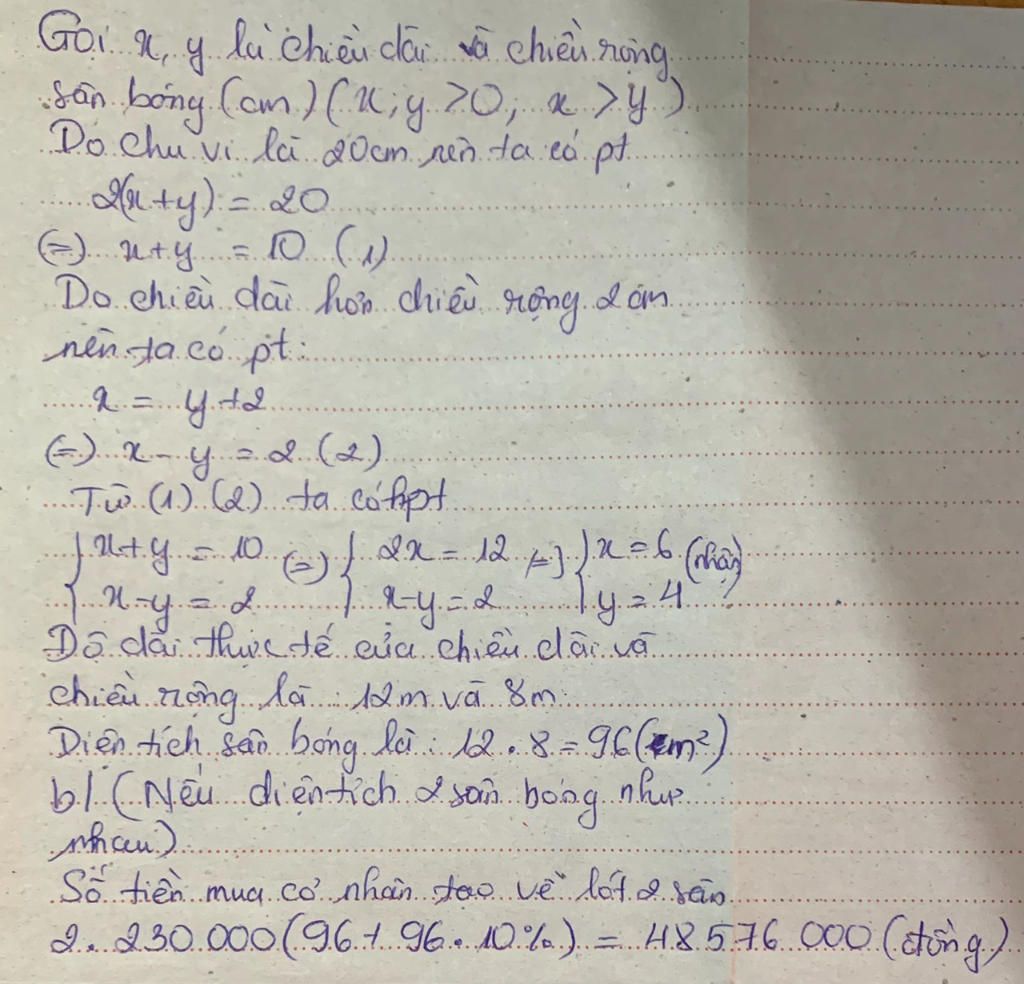 Gọi x, y là chiều dài và chiều rộng
sân bóng (cm) (x; y >0, x > y)
Do chu vi là 20cm nên ta có pt
2(x+y) = 20
(=) x+y = 10 (1)
Do chiều dài hơn chiều rộng 2cm
nên ta có pt:
x = y+2
(=) x - y = 2 (2)
Từ (1) (2) ta có hpt
{ x+y = 10 (=) { 2x = 12 (=) { x = 6 (nhận)
{ x-y = 2 { x-y = 2 { y = 4
Độ dài thực tế của chiều dài và
chiều rộng là: 12m và 8m
Diện tích sân bóng là: 12.8=96(m²)
b/ (Nếu diện tích 2 sân bóng như
nhau)
Số tiền mua cỏ nhân tạo về lót 2 sân
2. 230 000(96+96.10%) = 48 576 000 (đồng)